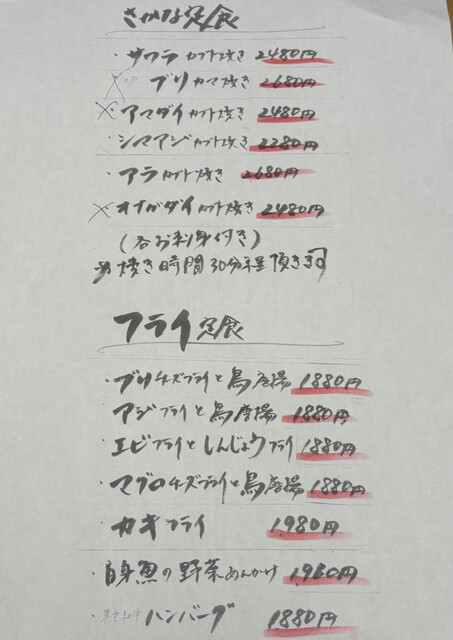 さかな定食
・サワラカブト焼き 2480円
ブリカマ焼き 2680円
×アマダイカブト焼き 2480円
・シマアジカブト焼き 2280円
・アラカブト焼き 2680円
×オナガダイカブト焼き 2480円
(各お刺身付き)
※焼き時間30分程頂きます
フライ定食
・ブリチーズフライと鳥唐揚 1880円
・アジフライと鳥唐揚 1880円
・エビフライとしんじょうフライ 1880円
・マグロチーズフライと鳥唐揚 1880円
・カキフライ 1980円
・白身魚の野菜あんかけ 1980円
・黒毛和牛ハンバーグ 1880円